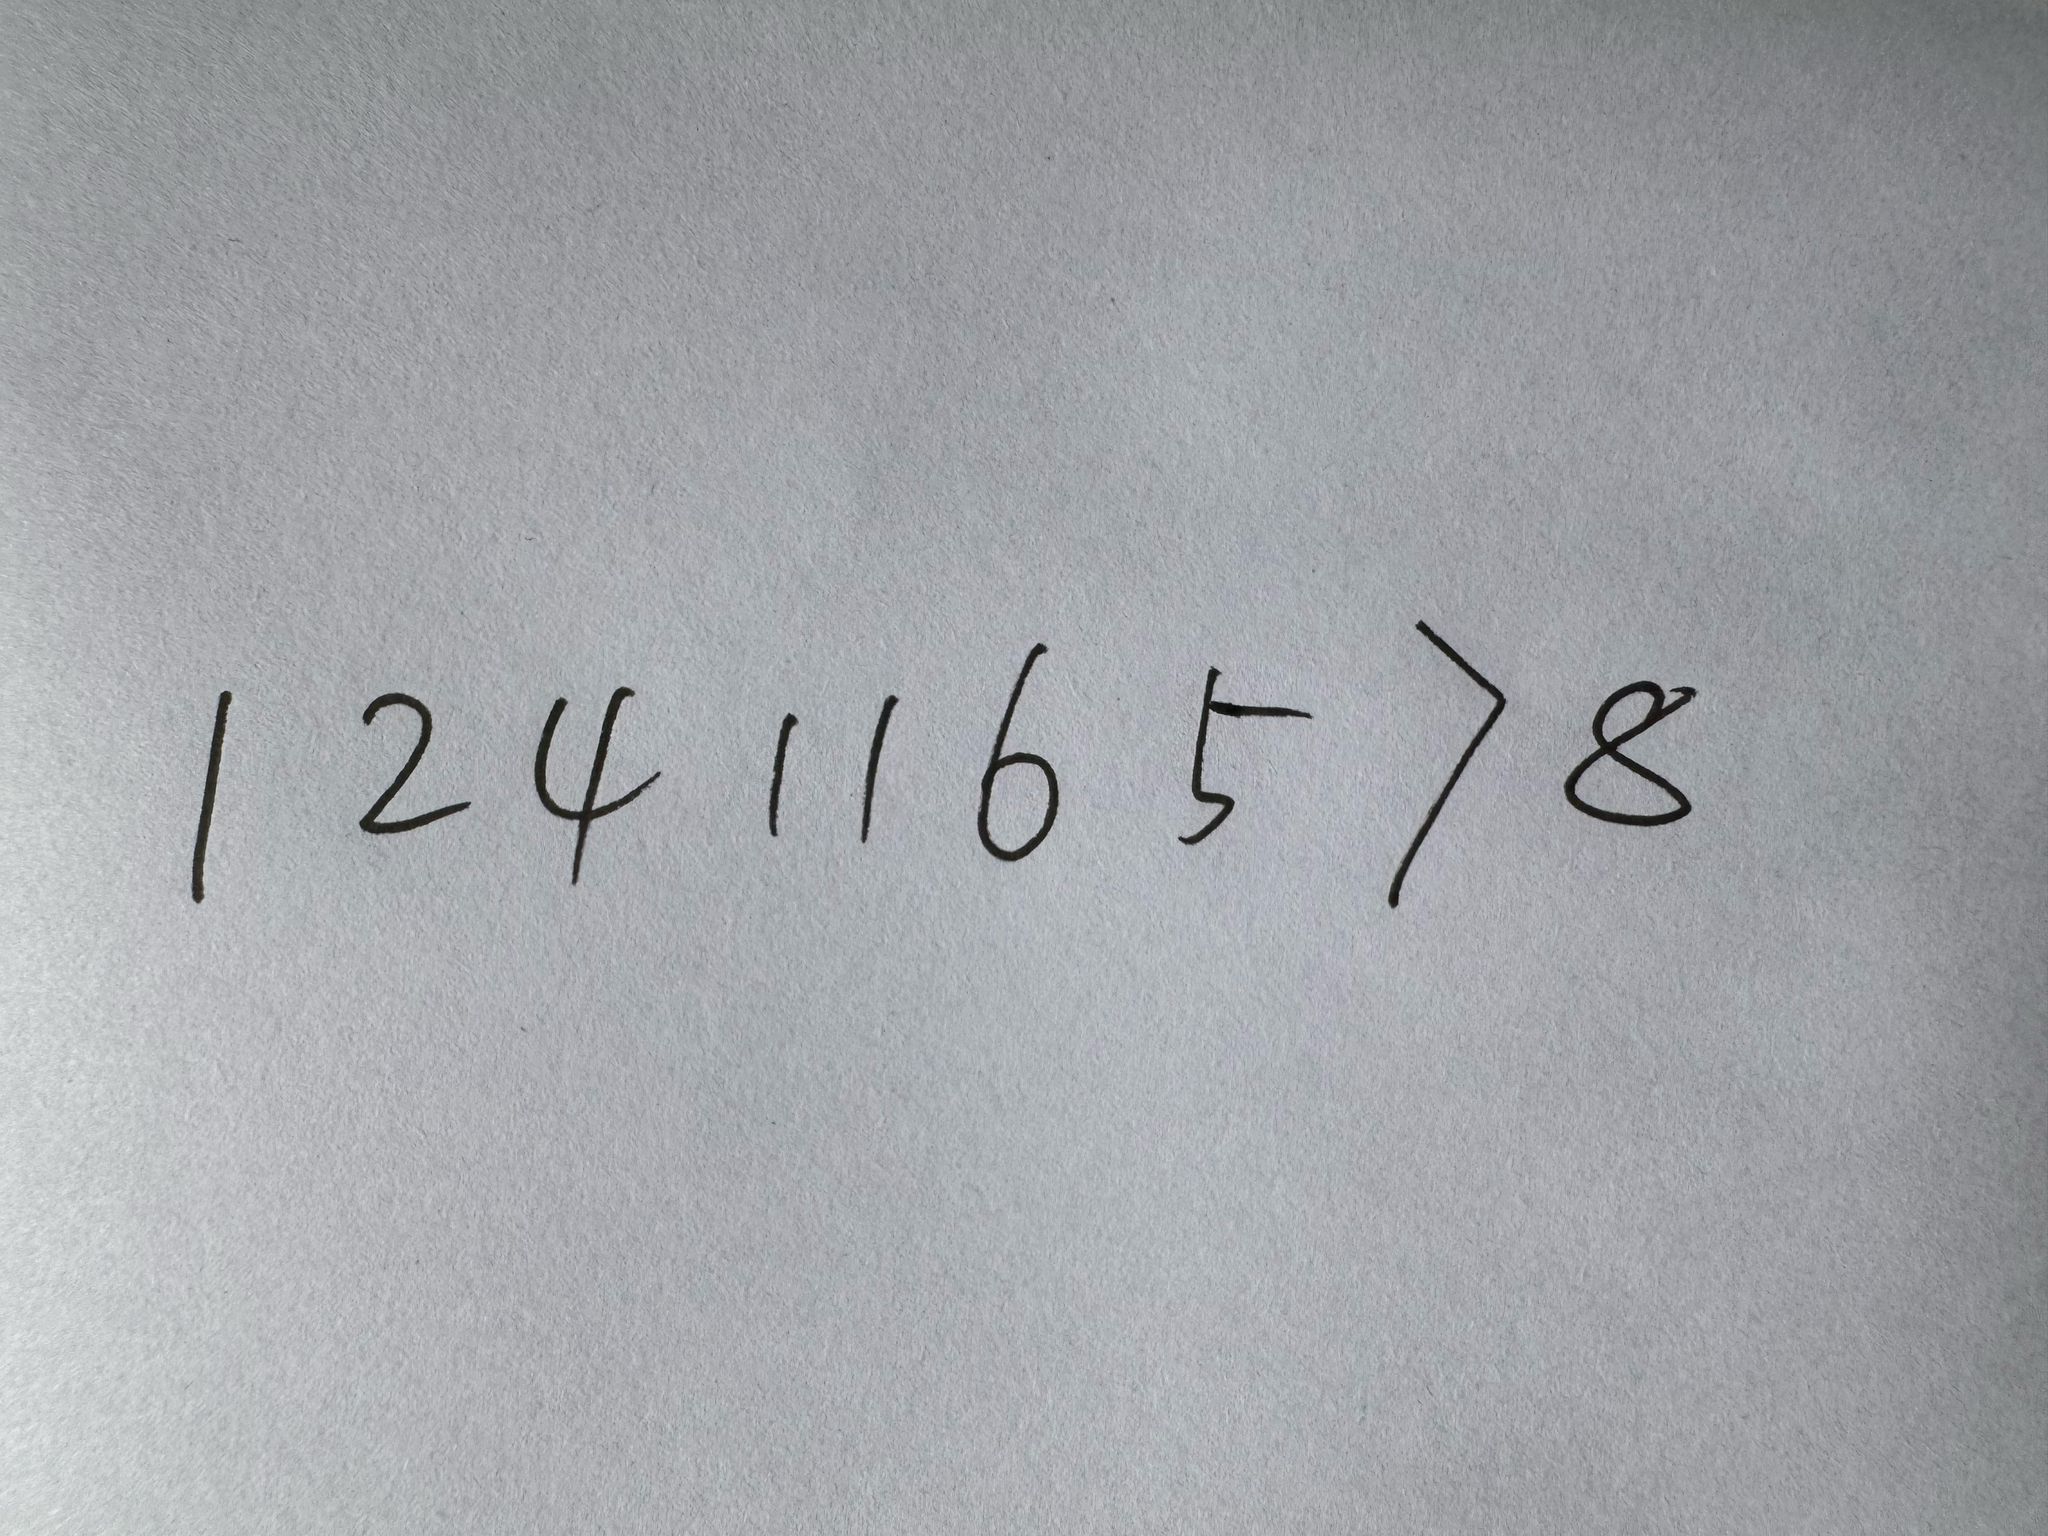 1 2 4 1 1 6 5 7 8